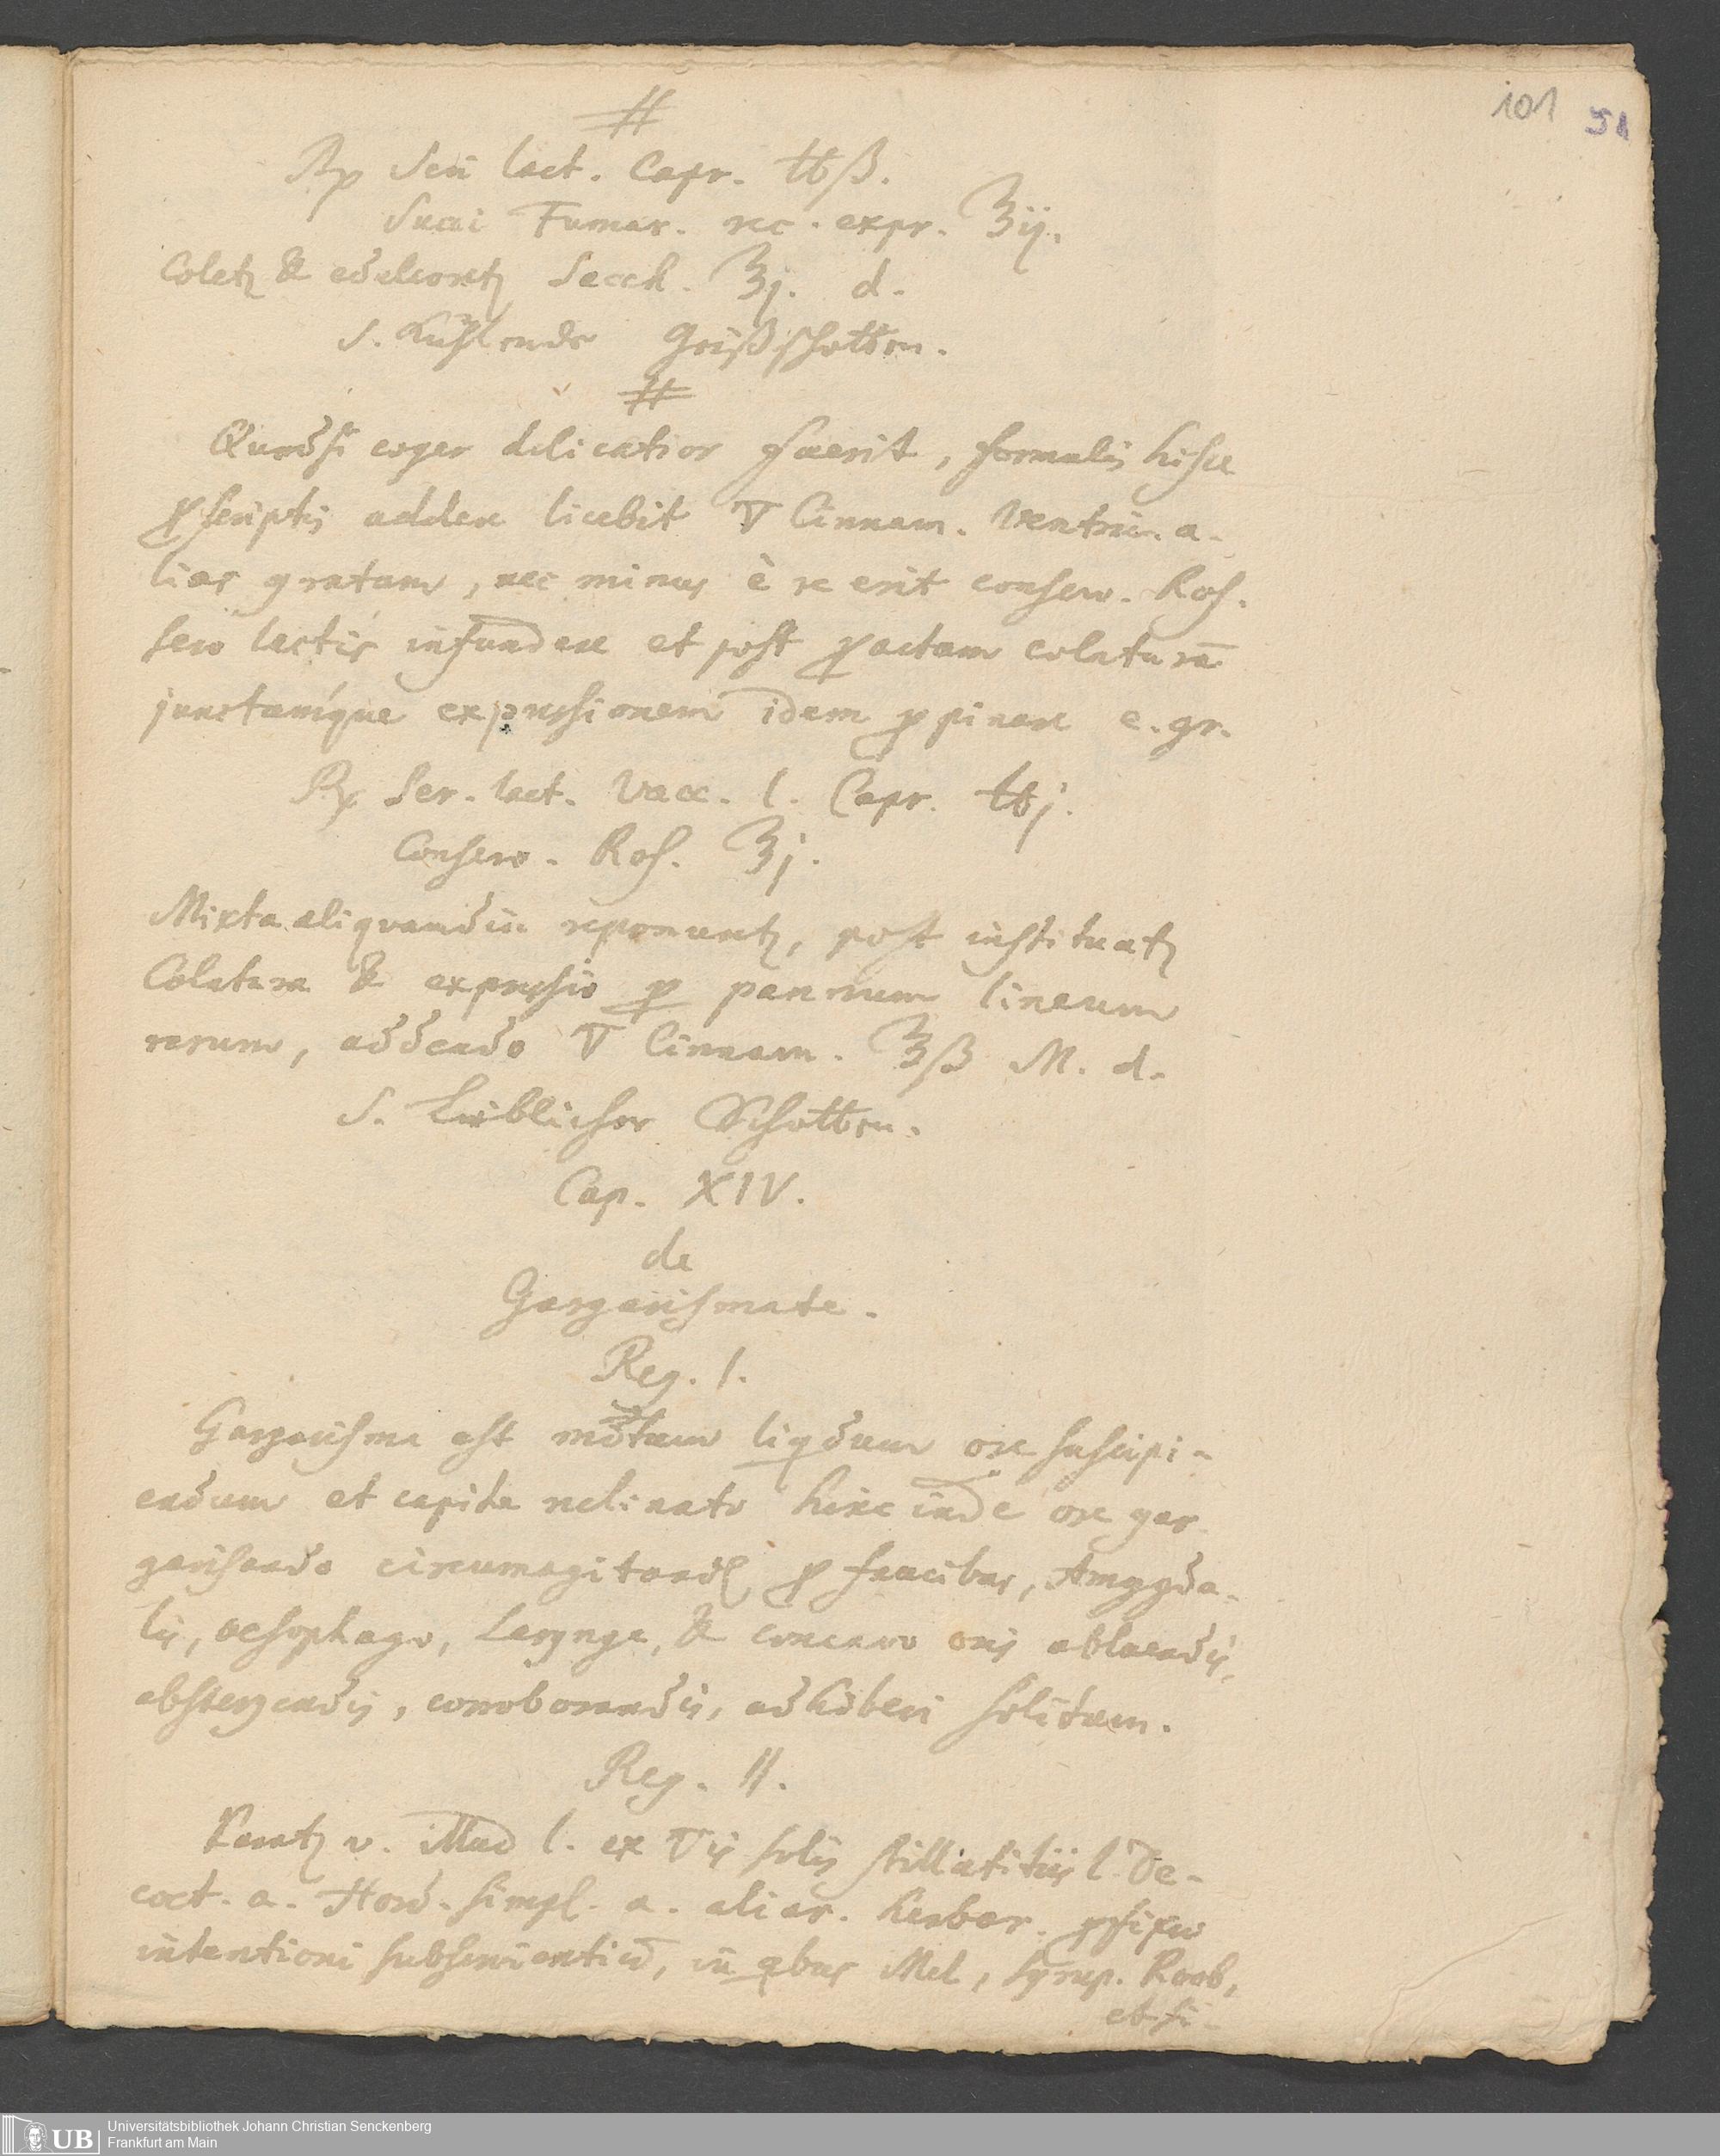 101 51
#
Rp Seri lact. Capr. ℔ß.
Succi Fumar. rec. expr. ℥ij.
Coletʒ & edulcoretʒ Sacch. ℥j. d.
S. Kühlende Geißschotten.
#
Quodsi aeger delicatior fuerit, formulis hisce
pscriptis addere licebit ▽ Cinnam. Ventric. a-
lias gratam, nec minus è re erit conserv. Ros.
sero lactis infundere et post pactam colaturā
junctamque expressionem idem ppinare e. gr.
Rp Ser. lact. Vacc. l. Capr. ℔j.
Conserv. Ros. ℥j.
Mixta aliquamdiu reponantʒ, post instituatʒ
Colatura & expressio p pannum lineum
rarum, addendo ▽ Cinnam. ℥ß M. d.
S. Lieblicher Schotten.
Cap. XIV.
de
Gargarismate.
Reg. I.
Gargarisma est mdtum liqdum ore suscipi-
endum et capite reclinato hinc inde ore gar-
garisando circumagitand p faucibus, Amygda-
lis, oesophago, Larynge, & concavo oris abluendis,
abstergendis, corroborandis, adhiberi solitum.
Reg. II.
Paratʒ v. illud l. ex ▽is solis stillatitiis l. De-
coct. a. Hord. simpl. a. aliar. herbar. pfixae
intentioni subservientiū, in qbus Mel, Syrup. Roob,
et si-
Universitätsbibliothek Johann Christian Senckenberg
Frankfurt am Main
UB